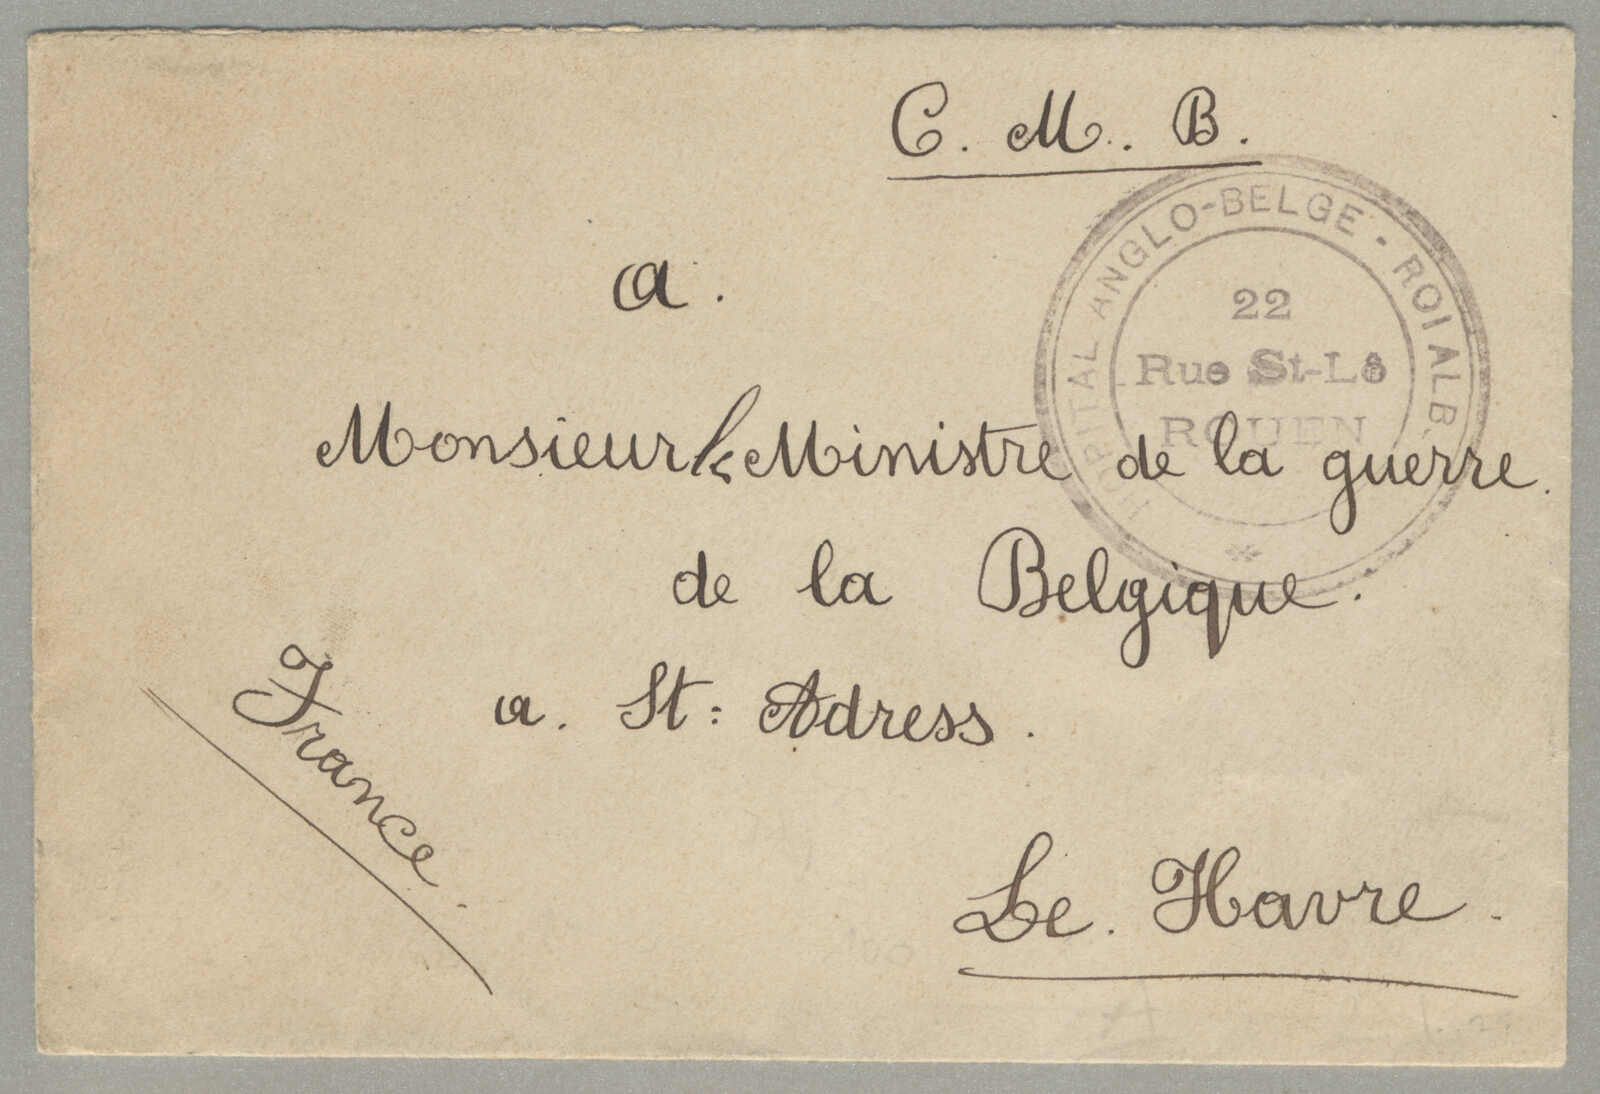 C. M. B.
HOPITAL ANGLO-BELGE - ROI ALB.
22
Rue St-Lô
ROUEN
a.
Monsieur le Ministre de la guerre.
de la Belgique.
a. St: Adress.
France.
Le. Havre.